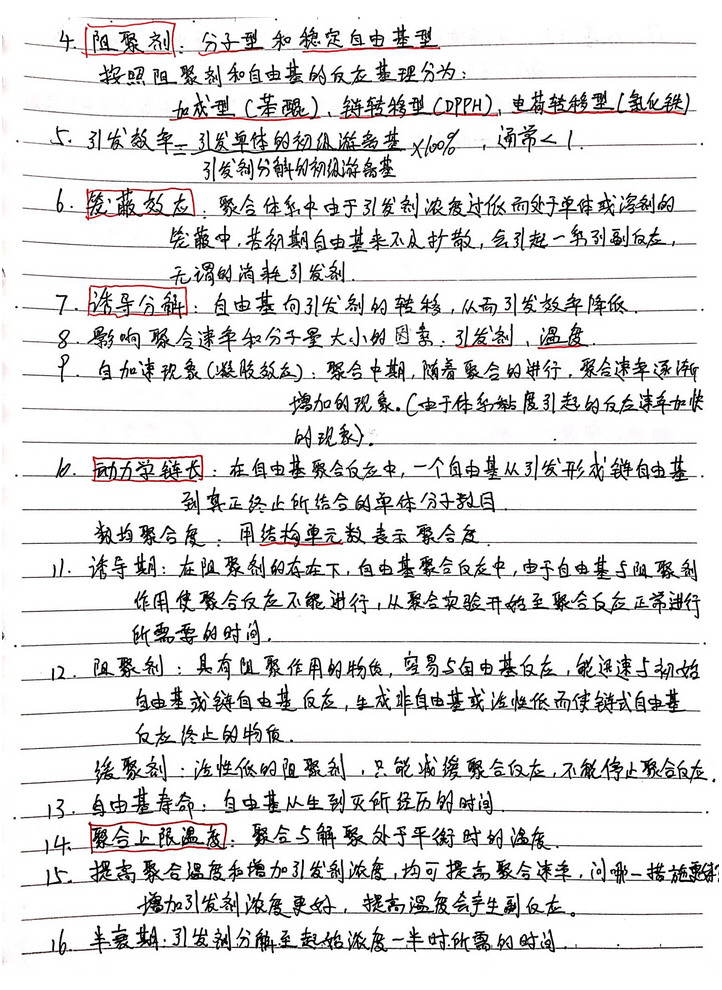 4. 阻聚剂：分子型 和 稳定自由基型
按照阻聚剂和自由基的反应基理分为：
加成型（苯醌）、链转移型（DPPH）、电荷转移型（氯化铁）
5. 引发效率= 引发单体的初级游离基 ×100%，通常<1.
引发剂分解的初级游离基
6. 笼蔽效应：聚合体系中由于引发剂浓度过低而处于单体或溶剂的
笼蔽中，若初期自由基来不及扩散，会引起一系列副反应，
无谓的消耗引发剂.
7. 诱导分解：自由基向引发剂的转移，从而引发效率降低.
8. 影响聚合速率和分子量大小的因素：引发剂，温度.
9. 自加速现象（凝胶效应）：聚合中期，随着聚合的进行，聚合速率逐渐
增加的现象。（由于体系黏度引起的反应速率加快
的现象）.
10. 动力学链长：在自由基聚合反应中，一个自由基从引发形成链自由基
到真正终止所结合的单体分子数目.
数均聚合度：用结构单元数表示聚合度.
11. 诱导期：在阻聚剂的存在下，自由基聚合反应中，由于自由基与阻聚剂
作用使聚合反应不能进行，从聚合实验开始至聚合反应正常进行
所需要的时间.
12. 阻聚剂：具有阻聚作用的物质，容易与自由基反应，能迅速与初始
自由基或链自由基反应，生成非自由基或活性低而使链式自由基
反应终止的物质.
缓聚剂：活性低的阻聚剂，只能减缓聚合反应，不能停止聚合反应.
13. 自由基寿命：自由基从生到灭所经历的时间
14. 聚合上限温度：聚合与解聚处于平衡时的温度.
15. 提高聚合温度和增加引发剂浓度，均可提高聚合速率，问哪一措施更好
增加引发剂浓度更好，提高温度会产生副反应。
16. 半衰期：引发剂分解至起始浓度一半时所需的时间.